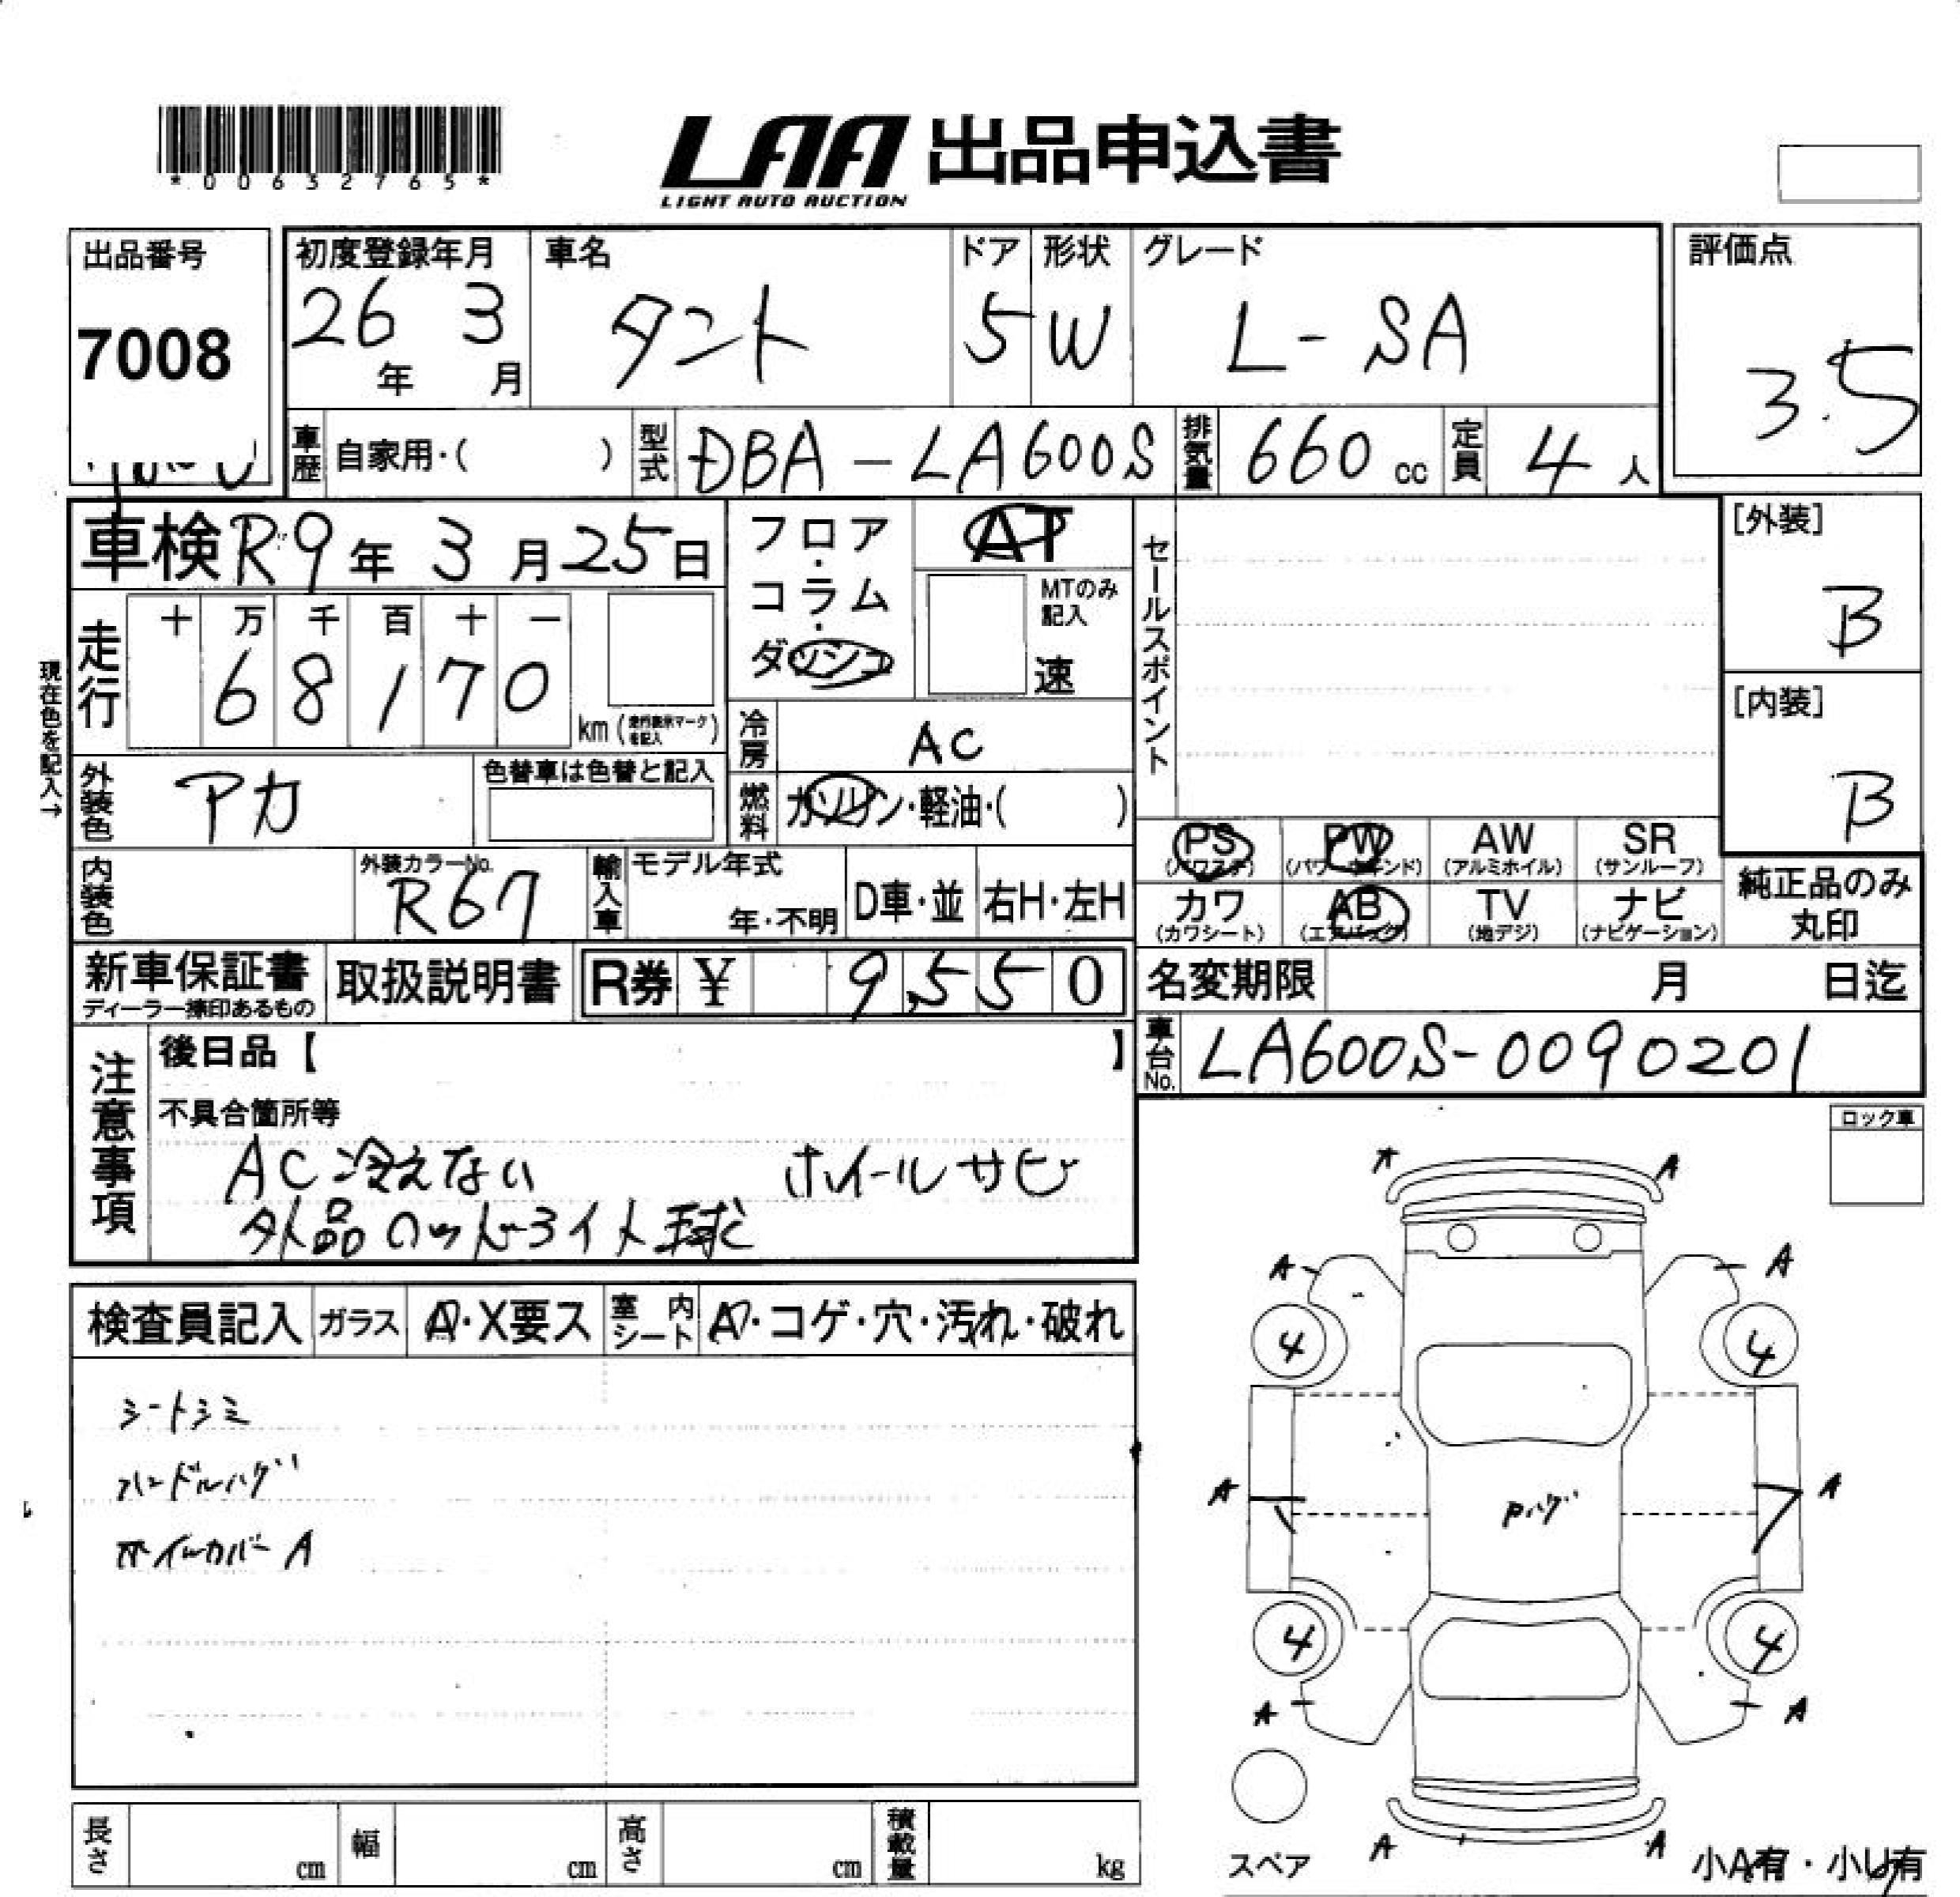 *00632765*
LAA 出品申込書
LIGHT AUTO AUCTION
出品番号
7008
初度登録年月
26年 3月
車名
タント
ドア
5
形状
W
グレード
L-SA
評価点
3.5
車歴 自家用・( )
型式 DBA-LA600S
排気量 660 cc
定員 4 人
車検 R9年 3月 25日
フロア・コラム・ダッシュ
AT
MTのみ記入
速
セールスポイント
[外装]
B
[内装]
B
現在色を記入→
走行
十 万 千 百 十 一
6 8 1 7 0
km (走行表示マークを記入)
冷房 AC
燃料 ガソリン・軽油・( )
外装色 アカ
色替車は色替と記入
内装色
外装カラーNo.
R67
輸入車
モデル年式
年・不明
D車・並
右H・左H
PS (パワステ)
PW (パワーウインド)
AW (アルミホイル)
SR (サンルーフ)
カワ (カワシート)
AB (エアバッグ)
TV (地デジ)
ナビ (ナビゲーション)
純正品のみ丸印
新車保証書
ディーラー捺印あるもの
取扱説明書
R券 ¥ 9,550
名変期限 月 日迄
車台No. LA600S-0090201
注意事項
後日品【 】
不具合箇所等
AC冷えない ホイールサビ
外品 ヘッドライト球
ロック車
検査員記入
ガラス
A・X要ス
室内シート
A・コゲ・穴・汚れ・破れ
シートシミ
ハンドルハゲ
ホイルカバーA
A A
A A
4 4
A A
Pハゲ
4 4
A A
A A
スペア
小A有・小U有
長さ cm
幅 cm
高さ cm
積載量 kg